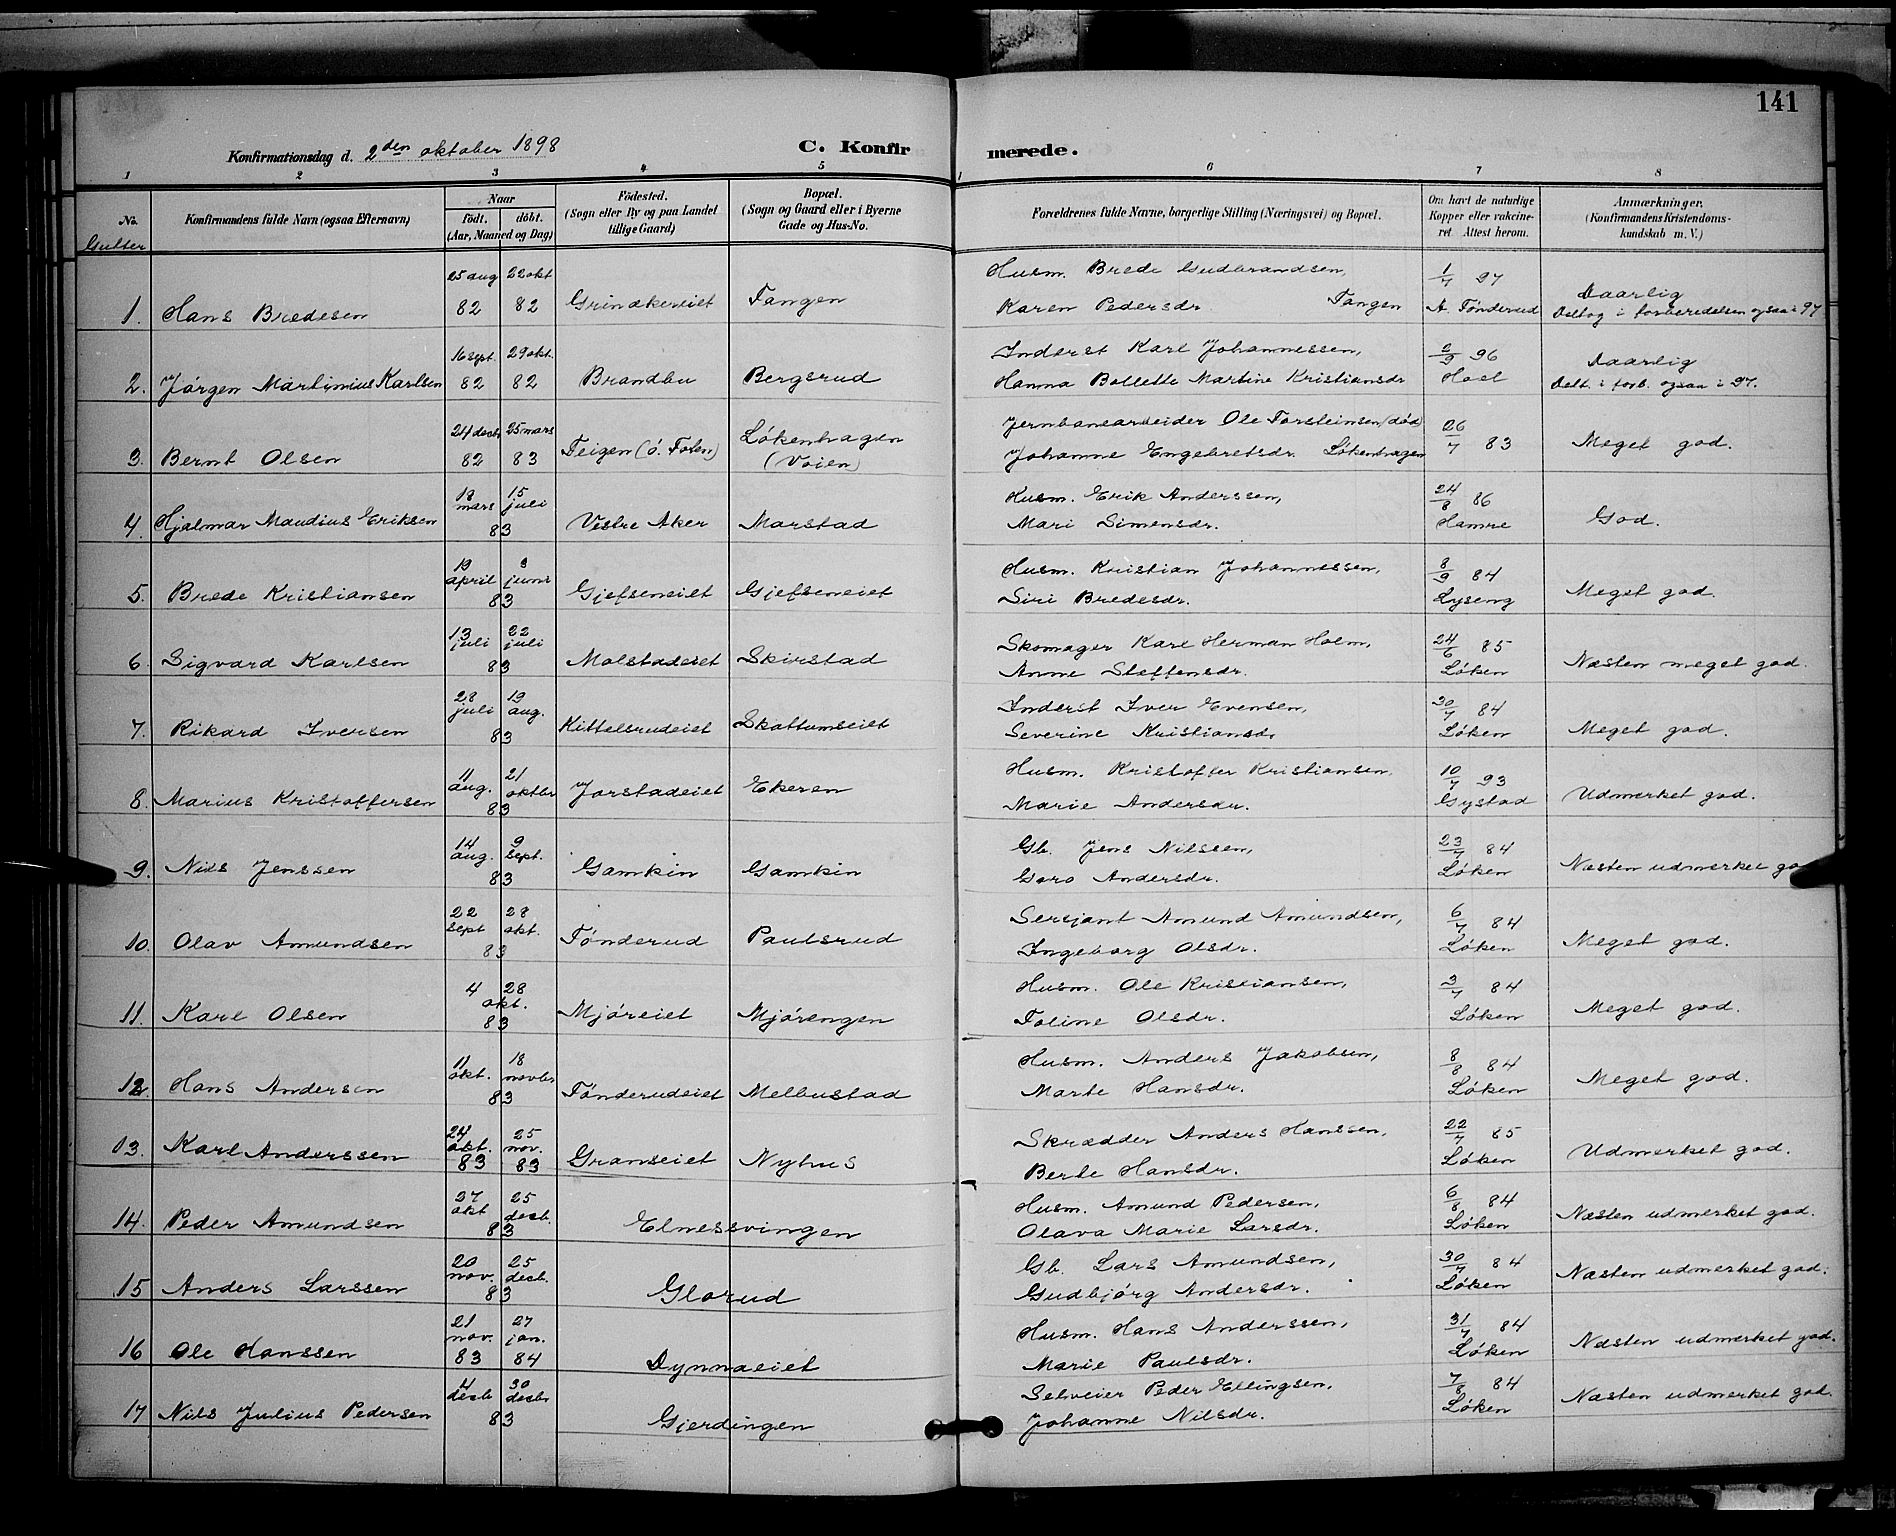 141
Konfirmationsdag d. 2den oktober 1898
C. Konfirmerede.
1 2 3 4 5 1 6 7 8
No. Konfirmandens fulde Navn (ogsaa Efternavn) Naar født, døbt. (Aar, Maaned og Dag) Fødested. (Sogn eller By og paa Landet tillige Gaard) Bopæl. (Sogn og Gaard eller i Byerne Gade og Hus-No. Forældrenes fulde Navne, borgerlige Stilling (Næringsvei) og Bopæl. Om havt de naturlige Kopper eller vakcineret. Attest herom. Anmærkninger. (Konfirmandens Kristendomskundskab m. V.)
Gutter
25 aug 22 okt Husm. Brede Gudbrandsen, 1/7 97 Daarlig
1. Hans Bredesen 82 82 Grindkereiet Tangen Karen Pedersdr Tangen A. Tønderud Deltog i forberedelsen ogsaa i 97
16 sept. 29 okt. Inderst Karl Johannessen, 2/9 96 Daarlig
2. Jørgen Martinius Karlsen 82 82 Brandbu Bergsrud Hanna Bollette Martine Kristiansdr Hoel Delt. i forb. ogsaa i 97.
24 decbr 25 mars Løkenhagen Jernbanearbeider Ole Torsteinsen (død) 26/7 83 Meget god.
3. Bernt Olsen 82 83 Teigen (ø. Toten) (Voien) Johanne Engebretsdr. Løkenhagen
18 mars 15 juli Husm. Erik Anderssen, 24/8 86 God.
4. Hjalmar Maudius Eriksen 83 Vestre Aker Marstad Mari Simensdr. Hamre
19 april 3 juni Husm. Kristian Johannessen, 8/9 84 Meget god.
5. Brede Kristiansen 83 Gjefseneiet Gjefseneiet Siri Bredesdr. Lyseng
13 juli 22 juli Skomager Karl Herman Holm, 24/6 85
6. Sigvard Karlsen 83 Molstadeiet Skirstad Anne Steffensdr. Løken Næsten meget god.
28 juli 19 aug. Inderst Iver Evensen, 30/7 84
7. Rikard Iversen 83 Kittelsrudeiet Skattumseiet Severine Kristiansdr Løken Meget god.
11 aug. 21 oktbr Husm. Kristoffer Kristiansen, 10/7 93
8. Marius Kristoffersen 83 Jorstadeiet Ekeren Marie Andersdr. Gystad Udmerket god.
14 aug. 9 sept. Gb. Jens Nilssen, 23/7 84
9. Nils Jenssen 83 Gamkin Gamkin Goro Andersdr. Løken Næsten udmerket go
22 sept 28 okt. Sersjant Amund Amundsen, 6/7 84
10. Olav Amundsen 83 Tønderud Paulsrud Ingeborg Olsdr. Løken Meget god.
4 28 okt. Husm. Ole Kristiansen, 3/7 84
11. Karl Olsen 83 Mjøreiet Mjørengen Toline Olsdr. Løken Meget god.
11 okt. 18 novbr Husm. Anders Jakobsen, 8/8 84
12. Hans Andersen 83 Tønderudeiet Melbustad Marte Hansdr. Løken Meget god.
24 okt. 25 nov. Skrædder Anders Hanssen, 22/7 85
13. Karl Anderssen 83 83 Granseiet Nyhus Berte Hansdr. Løken Udmerket god.
27 okt 25 decb. Husm. Amund Pedersen, 6/8 84
14. Peder Amundsen 83 Elnessvingen Olava Marie Larsdr. Løken Næsten udmerket god.
20 nov. 25 decb. Gb. Lars Amundsen, 30/7 84
15. Anders Larssen 83 Glorud Gudbjørg Andersdr. Løken Næsten udmerket god.
21 nov. 27 jan. Husm. Hans Anderssen, 31/7 84
16 Ole Hanssen 83 84 Dynnaeiet Marie Paulsdr. Løken Næsten udmerket god.
4 decb 30 decbr Selveier Peder Ellingsen, 7/8 84
17 Nils Julius Pedersen 83 Gjerdingen Johanne Nilsdr. Løken Næsten udmerket god.